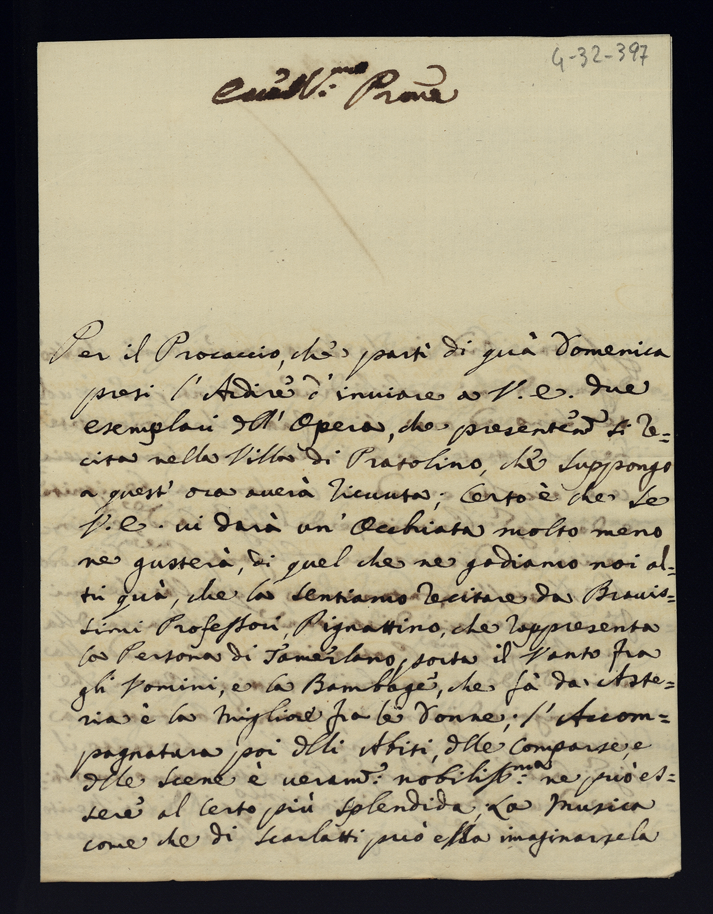 4-32-397
Per il Procaccio, che partì di quà Domenica
presi l'Ardire d'inviare a V. E. due
esemplari dell' Opera, che presentem.te si re=
cita nella Villa di Pratolino, che suppongo
a quest' ora averà ricevuta; certo è che se
V. E. vi darà un' Occhiata molto meno
ne gusterà, di quel che ne godiamo noi al=
tri quà, che la sentiamo recitare da Bravis=
simi Professori, Pignattino, che rappresenta
la Persona di Tamerlano, porta il Vanto fra
gli Vomini, e la Bambage, che fà da Aste=
ria è la migliore fra le Donne; l'Accom=
pagnatura poi delli Abiti, delle Comparse, e
delle Scene è veram.e nobiliss.ma ne può es=
sere al certo più splendida, La Musica
come che di Scarlatti può essa imaginarsela